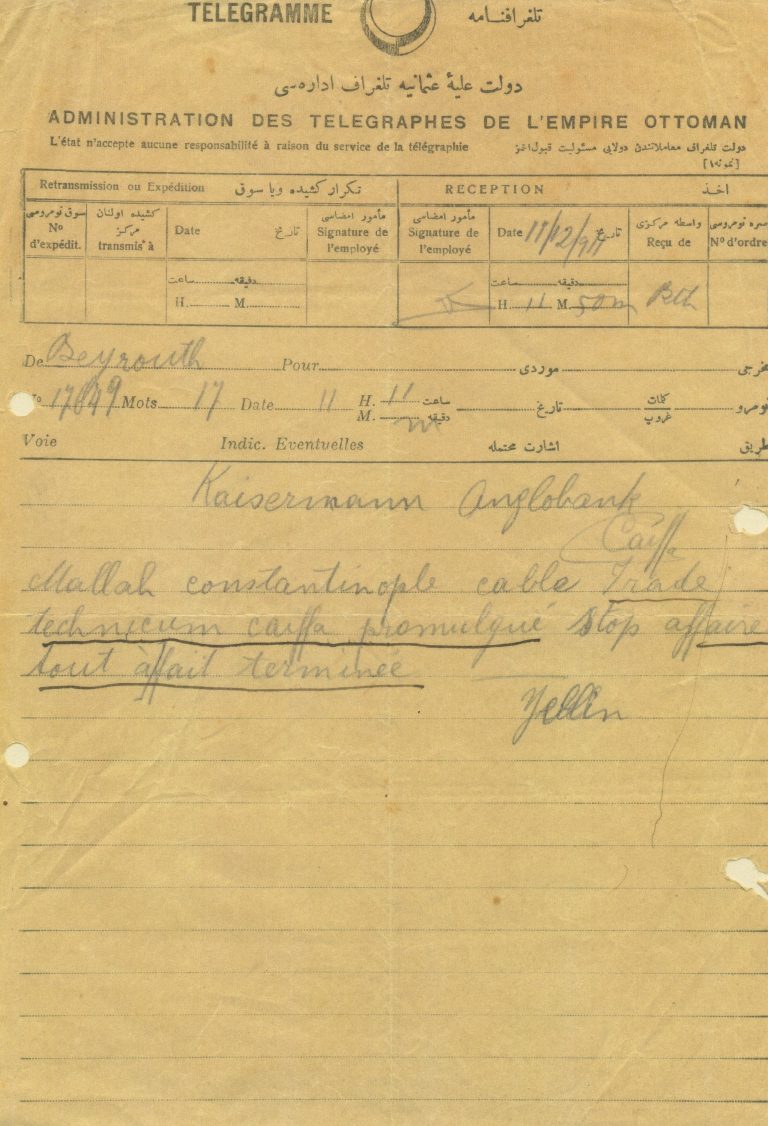 TELEGRAMME تلغرافنامه
دولت عليهٔ عثمانيه تلغراف اداره‌سی
ADMINISTRATION DES TELEGRAPHES DE L'EMPIRE OTTOMAN
L'état n'accepte aucune responsabilité à raison du service de la télégraphie
دولت تلغراف معاملاتندن دولايی مسئوليت قبول ايتمز
Retransmission ou Expédition تكرار كشيده ويا سوق RECEPTION اخذ
سوق نومروسی Nº d'expédit.
كشيده اولنان مركز transmis à
Date تاريخ
مأمور امضاسی Signature de l'employé
مأمور امضاسی Signature de l'employé
Date 11/12/ تاريخ
واسطه مركزی Reçu de
نومروسی Nº d'ordre
ساعت دقيقه ساعت دقيقه
H. M. H 11 M 50 m Bth
De Beyrouth Pour موردی مخرجی
Nº 17849 Mots 17 Date 11 H. 11 ساعت تاريخ كلمات نومرو
M. دقيقه غروپ
Voie Indic. Eventuelles اشارت محتمله طريق
Kaisermann Anglobank
Caiffa
Mallah constantinople cable Trade
technicum caiffa promulgué stop affaire
tout àffait terminée
Yellin